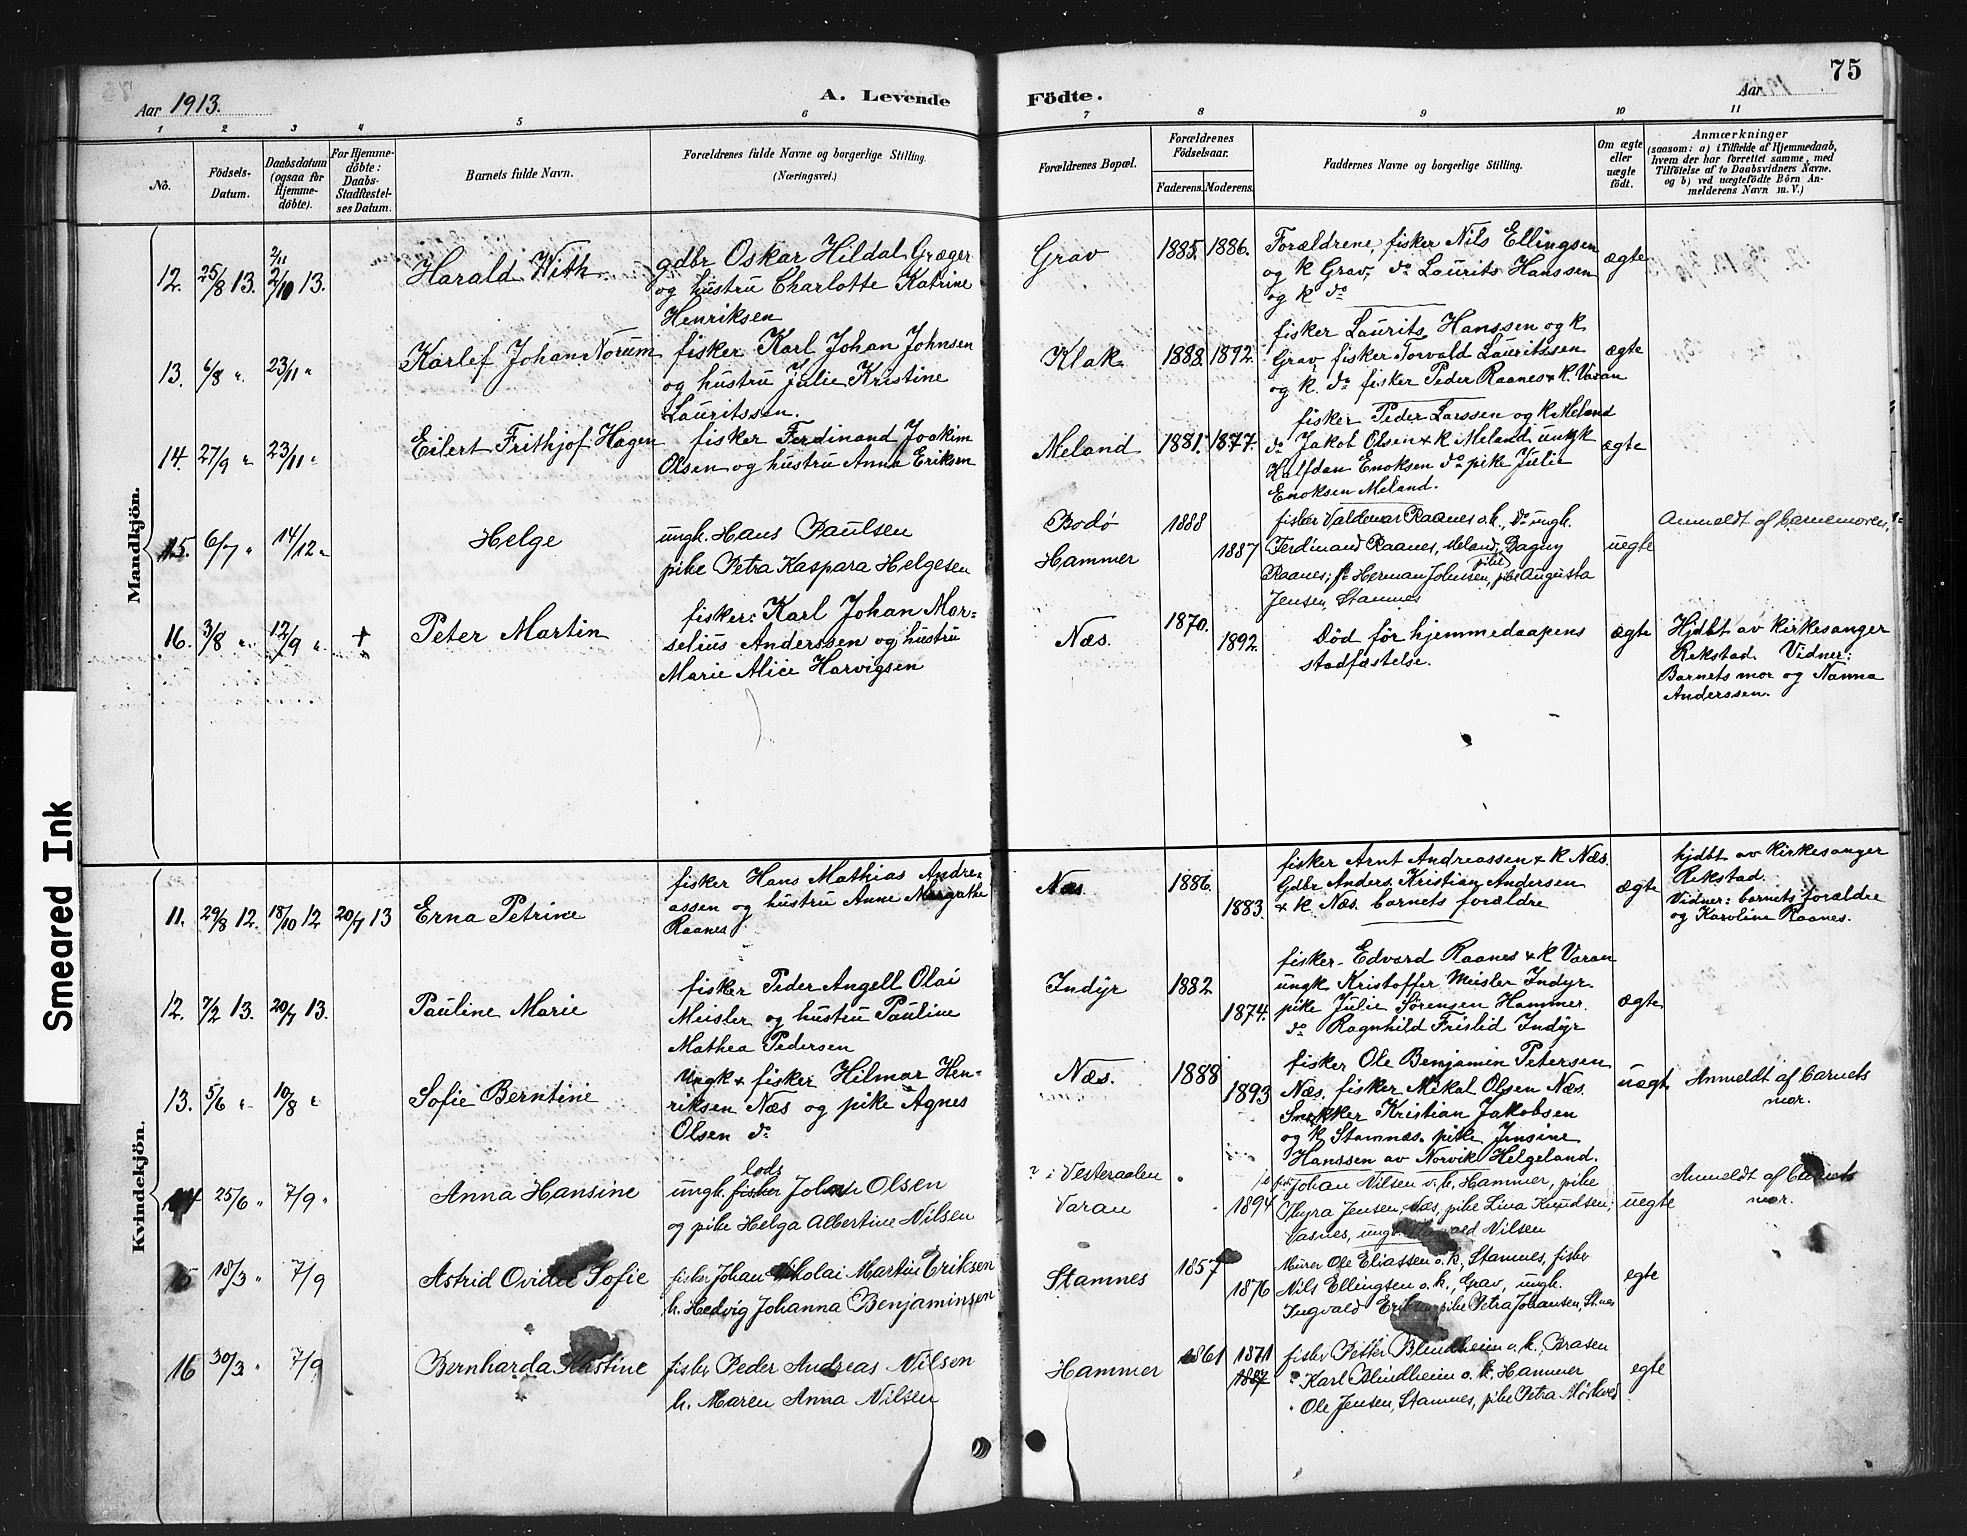 75
Aar 1913.
A. Levende Födte.
Aar
1 2 3 4 5 6 7 8 9 10 11
No.
Födsels-Datum.
Daabsdatum (ogsaa for Hjemme-döbte).
For Hjemme-döbte: Daabs-Stadfæstel-ses Datum.
Barnets fulde Navn.
Forældrenes fulde Navne og borgerlige Stilling.
(Næringsvei.)
Forældrenes Bopæl.
Forældrenes Födselsaar.
Faderens. Moderens.
Faddernes Navne og borgerlige Stilling.
Om ægte eller uægte födt.
Anmærkninger
(saasom: a) i Tilfælde af Hjemmedaab,
hvem der har forrettet samme, med
Tilföielse af to Daabsvidners Navne,
og b) ved uægtefödte Börn An-
melderens Navn m. V.)
Mandkjön.
12. 25/8 13. 2/11 2/10 13. Harald With
gdbr Oskar Hildal Græger
og hustru Charlotte Katrine
Henriksen
Grav 1885. 1886.
Forældrene, fisker Nils Ellingsen
og k Grav, do Laurits Hanssen
og k do
ægte
13. 6/8 " 23/11 " Karlef Johan Norum
fisker Karl Johan Johnsen
og hustru Julie Kristine
Lauritssen.
Klak 1888. 1892.
fisker Laurits Hanssen og k
Grav, fisker Torvald Lauritssen
og k. do fisker Peder Raanes & k. Varan
ægte
14. 27/9 " 23/11 " Eilert Frithjof Hagen
fisker Ferdinand Joakim
Olsen og hustru Anna Eriksen
Meland 1881. 1877.
fisker Peder Larssen og k Meland
do Jakob Olsen & k Meland ungk
Halfdan Enoksen do pike Julie
Enoksen Meland.
ægte
15. 6/7 " 14/12 " Helge
ungk. Hans Paulsen
pike Petra Kaspara Helgesen
Bodø
Hammer
1888
1887
fisker Valdemar Raanes o.k., do ungk.
Ferdinand Raanes, Meland, Dagny
pike
Raanes; Herman Johnsen, pike Augusta
Jensen, Stamnes
uegte
Anmeldt af barnemoren.
16. 3/8 " 12/9 " + Peter Martin
fisker: Karl Johan Mar-
selius Anderssen og hustru
Marie Alice Harvigsen
Næs. 1870. 1892.
Død før hjemmedaapens
stadfæstelse.
ægte
Hjdbt av kirkesanger
Rekstad. Vidner:
Barnets mor og Nanna
Anderssen.
Kvindekjön.
11. 29/8 12. 18/10 12 20/7 13 Erna Petrine
fisker Hans Mathias Andre-
assen og hustru Anne Margrethe
Raanes
Næs 1886. 1883.
fisker Arnt Andreassen & k Næs.
Gdbr Anders Kristian Andersen
& k. Næs. barnets forældre
ægte
hjdbt av kirkesanger
Rekstad.
Vidner: barnets forældre
og Karoline Raanes.
12. 7/2 13. 20/7 13. Pauline Marie
fisker Peder Angell Olai
Meisler og hustru Pauline
Mathea Pedersen
Indyr 1882 1874.
fisker Edvard Raanes & k Varan
ungk Kristoffer Meisler Indyr
pike Julie Sørensen Hammer.
do Ragnhild Frislid Indyr
ægte
13. 5/6 " 10/8 " Sofie Berntine
Ungk & fisker Hilmar Hen-
riksen Næs og pike Agnes
Olsen do
Næs. 1888 1893
fisker Ole Benjamin Petersen
Næs. fisker Mikal Olsen Næs.
Snekker Kristian Jakobsen
og k Stamnæs. pike Jensine
Hanssen av Norvik Helgeland.
uegt
Anmeldt af barnets
mor.
14 25/6 " 7/9 " Anna Hansine
lods
ungk. fisker Johan Olsen
og pike Helga Albertine Nilsen
? i Vesteraalen
Varan
1894
Johan Nilsen o.k. Hammer, pike
Thyra Jensen, Næs, pike Lina Knudsen,
Vasnes, ungk. Nilsen
uegte
Anmeldt af barnets
mor.
15 18/3 " 7/9 Astrid Sofie
fisker Johan Nikolai Martin Eriksen
h. Hedvig Johanna Benjaminsen
Stamnes 1857 1876
Murer Ole Eliassen o.k., Stamnes, fisker
Nils Ellingsen o.k., Grav, ungk.
Ingvald pike Petra Johansen, St.nes
egte
16 30/3 " 7/9 Bernharda
fisker Peder Andreas Nilsen
h. Maren Anna Nilsen
Hammer 1861 1871
1887
fisker Petter Blindheim o.k., Brasen
" Karl Blindheim o.k. Hammer
" Ole Jensen, Stamnes, pike Petra Mørkved
egte
Smeared Ink